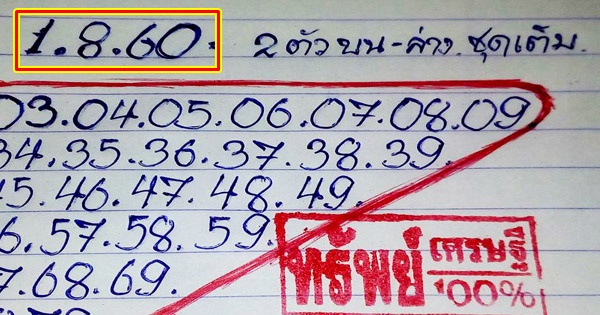 1.8.60. 2 ตัวบน-ล่าง ชุดเต็ม.
03.04.05.06.07.08.09
34.35.36.37.38.39.
45.46.47.48.49.
56.57.58.59.
67.68.69.
ทรัพย์ เศรษฐี
100%